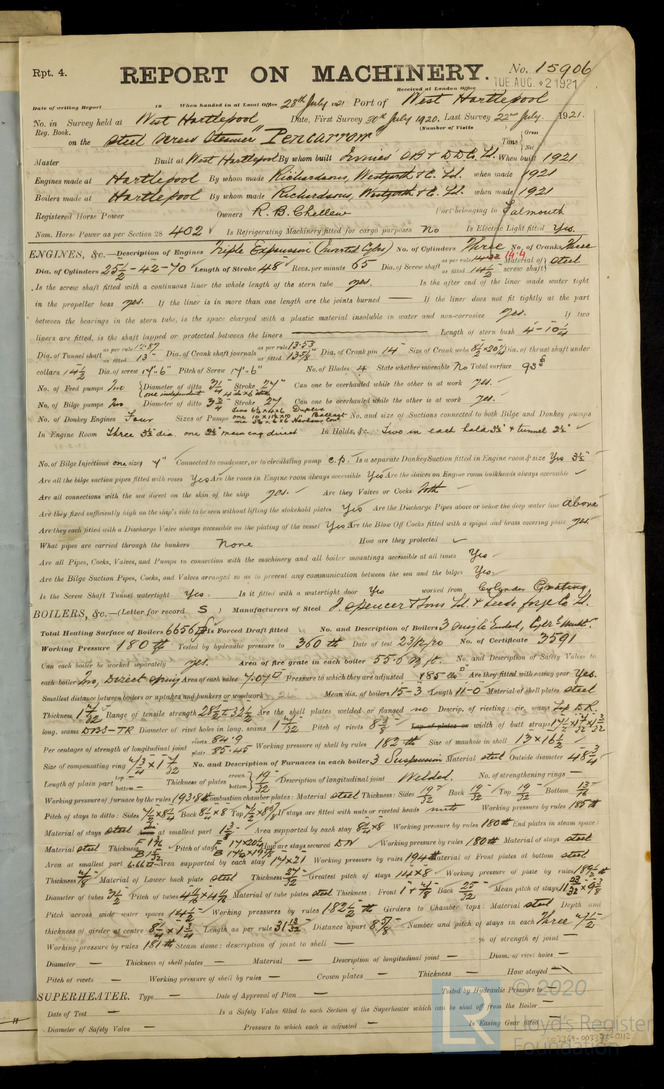 Rpt. 4.
REPORT ON MACHINERY.
No. 15906
Received at London Office
TUE AUG. 2 1921
Date of writing Report 19 When handed in at Local Office 28th July 1921 Port of West Hartlepool
No. in Survey held at West Hartlepool Date, First Survey 30th July 1920, Last Survey 22nd July 1921.
Reg. Book. (Number of Visits
on the Steel Screw Steamer "Pencarrow" Tons Gross Net
Master Built at West Hartlepool By whom built Irvines' S.B. & D.D. Co. Ld. When built 1921
Engines made at Hartlepool By whom made Richardsons, Westgarth & Co. Ld. when made 1921
Boilers made at Hartlepool By whom made Richardsons, Westgarth & Co. Ld. when made 1921
Registered Horse Power Owners R. B. Chellew Port belonging to Falmouth
Nom. Horse Power as per Section 28 402 Is Refrigerating Machinery fitted for cargo purposes No Is Electric Light fitted Yes.
ENGINES, &c.—Description of Engines Triple Expansion (Inverted Cyls) No. of Cylinders Three No. of Cranks Three
Dia. of Cylinders 25½-42-70 Length of Stroke 48 Revs. per minute 65 Dia. of Screw shaft as per rule as fitted 14½ Material of screw shaft steel
Is the screw shaft fitted with a continuous liner the whole length of the stern tube yes. Is the after end of the liner made water tight
in the propeller boss yes. If the liner is in more than one length are the joints burned — If the liner does not fit tightly at the part
between the bearings in the stern tube, is the space charged with a plastic material insoluble in water and non-corrosive yes. If two
liners are fitted, is the shaft lapped or protected between the liners — Length of stern bush 4-10¼
Dia. of Tunnel shaft as per rule 12.87 as fitted 13 Dia. of Crank shaft journals as per rule 13.53 as fitted 13⅝ Dia. of Crank pin 14 Size of Crank webs Dia. of thrust shaft under
collars 14½ Dia. of screw 17-6 Pitch of Screw 17-6 No. of Blades 4 State whether moveable No Total surface 93
No. of Feed pumps Two Diameter of ditto 3½ Stroke 24 Can one be overhauled while the other is at work yes.
No. of Bilge pumps Two Diameter of ditto 3¾ Stroke 24 Can one be overhauled while the other is at work yes.
No. of Donkey Engines Four Sizes of Pumps No. and size of Suctions connected to both Bilge and Donkey pumps
In Engine Room Three 3½ dia. one 3½ main eng direct In Holds, &c. Two in each hold 3½ & tunnel 2½
No. of Bilge Injections one sizes 4 Connected to condenser, or to circulating pump c.p. Is a separate Donkey Suction fitted in Engine room & size Yes 3½
Are all the bilge suction pipes fitted with roses Yes Are the roses in Engine room always accessible Yes Are the sluices on Engine room bulkheads always accessible ✓
Are all connections with the sea direct on the skin of the ship yes. Are they Valves or Cocks both
Are they fixed sufficiently high on the ship's side to be seen without lifting the stokehold plates Yes Are the Discharge Pipes above or below the deep water line Above
Are they each fitted with a Discharge Valve always accessible on the plating of the vessel Yes Are the Blow Off Cocks fitted with a spigot and brass covering plate yes
What pipes are carried through the bunkers None How are they protected ✓
Are all Pipes, Cocks, Valves, and Pumps in connection with the machinery and all boiler mountings accessible at all times Yes
Are the Bilge Suction Pipes, Cocks, and Valves arranged so as to prevent any communication between the sea and the bilges Yes
Is the Screw Shaft Tunnel watertight Yes. Is it fitted with a watertight door Yes worked from Cylinder Grating
BOILERS, &c.—(Letter for record S) Manufacturers of Steel J. Spencer & Sons Ld. & Leeds Forge Co. Ld.
Total Heating Surface of Boilers 6656 Is Forced Draft fitted No. and Description of Boilers 3 Single Ended, Cyl.
Working Pressure 180 lb Tested by hydraulic pressure to 360 lb Date of test 23/12/20 No. of Certificate 3591
Can each boiler be worked separately yes. Area of fire grate in each boiler 55.6 No. and Description of Safety Valves to
each boiler Two, Direct Spring Area of each valve 7.07 Pressure to which they are adjusted 185 lb Are they fitted with easing gear Yes.
Smallest distance between boilers or uptakes and bunkers or woodwork Mean dia. of boilers 15-3 Length 11-0 Material of shell plates steel
Thickness Range of tensile strength 28½-32½ Are the shell plates welded or flanged no Descrip. of riveting: cir. seams Lap D.R.
long. seams DBS-TR Diameter of rivet holes in long. seams Pitch of rivets 8⅜ Lap of plates or width of butt straps
Per centages of strength of longitudinal joint rivets 84.9 plate 85.45 Working pressure of shell by rules 182 lb Size of manhole in shell
Size of compensating ring No. and Description of Furnaces in each boiler 3 Suspension Material steel Outside diameter 48¾
Length of plain part top bottom Thickness of plates crown bottom 19/32 Description of longitudinal joint Welded. No. of strengthening rings —
Working pressure of furnace by the rules 193.8 lb Combustion chamber plates: Material steel Thickness: Sides 19/32 Back 19/32 Top 19/32 Bottom
Pitch of stays to ditto: Sides Back 8⅛ x 8 Top If stays are fitted with nuts or riveted heads nuts Working pressure by rules 185 lb
Material of stays steel at smallest part Area supported by each stay Working pressure by rules 180 lb End plates in steam space:
Material steel Thickness Pitch of stays How are stays secured D.N. Working pressure by rules 180 lb Material of stays steel
Area at smallest part Area supported by each stay 17 x 21 Working pressure by rules 194 lb Material of Front plates at bottom steel
Thickness Material of Lower back plate steel Thickness Greatest pitch of stays 14 x 8 Working pressure of plate by rules
Diameter of tubes 3½ Pitch of tubes Material of tube plates steel Thickness: Front Back 25/32 Mean pitch of stays
Pitch across wide water spaces 14½ Working pressures by rules 182½ lb Girders to Chamber tops: Material steel Depth and
thickness of girder at centre Length as per rule Distance apart Number and pitch of stays in each Three
Working pressure by rules 181 lb Steam dome: description of joint to shell — % of strength of joint —
Diameter — Thickness of shell plates — Material — Description of longitudinal joint — Diam. of rivet holes —
Pitch of rivets — Working pressure of shell by rules — Crown plates — Thickness — How stayed —
SUPERHEATER. Type — Date of Approval of Plan — Tested by Hydraulic Pressure to —
Date of Test — Is a Safety Valve fitted to each Section of the Superheater which can be shut off from the Boiler —
Diameter of Safety Valve — Pressure to which each is adjusted — Is Easing Gear fitted —
© 2020
Lloyd's Register
Foundation